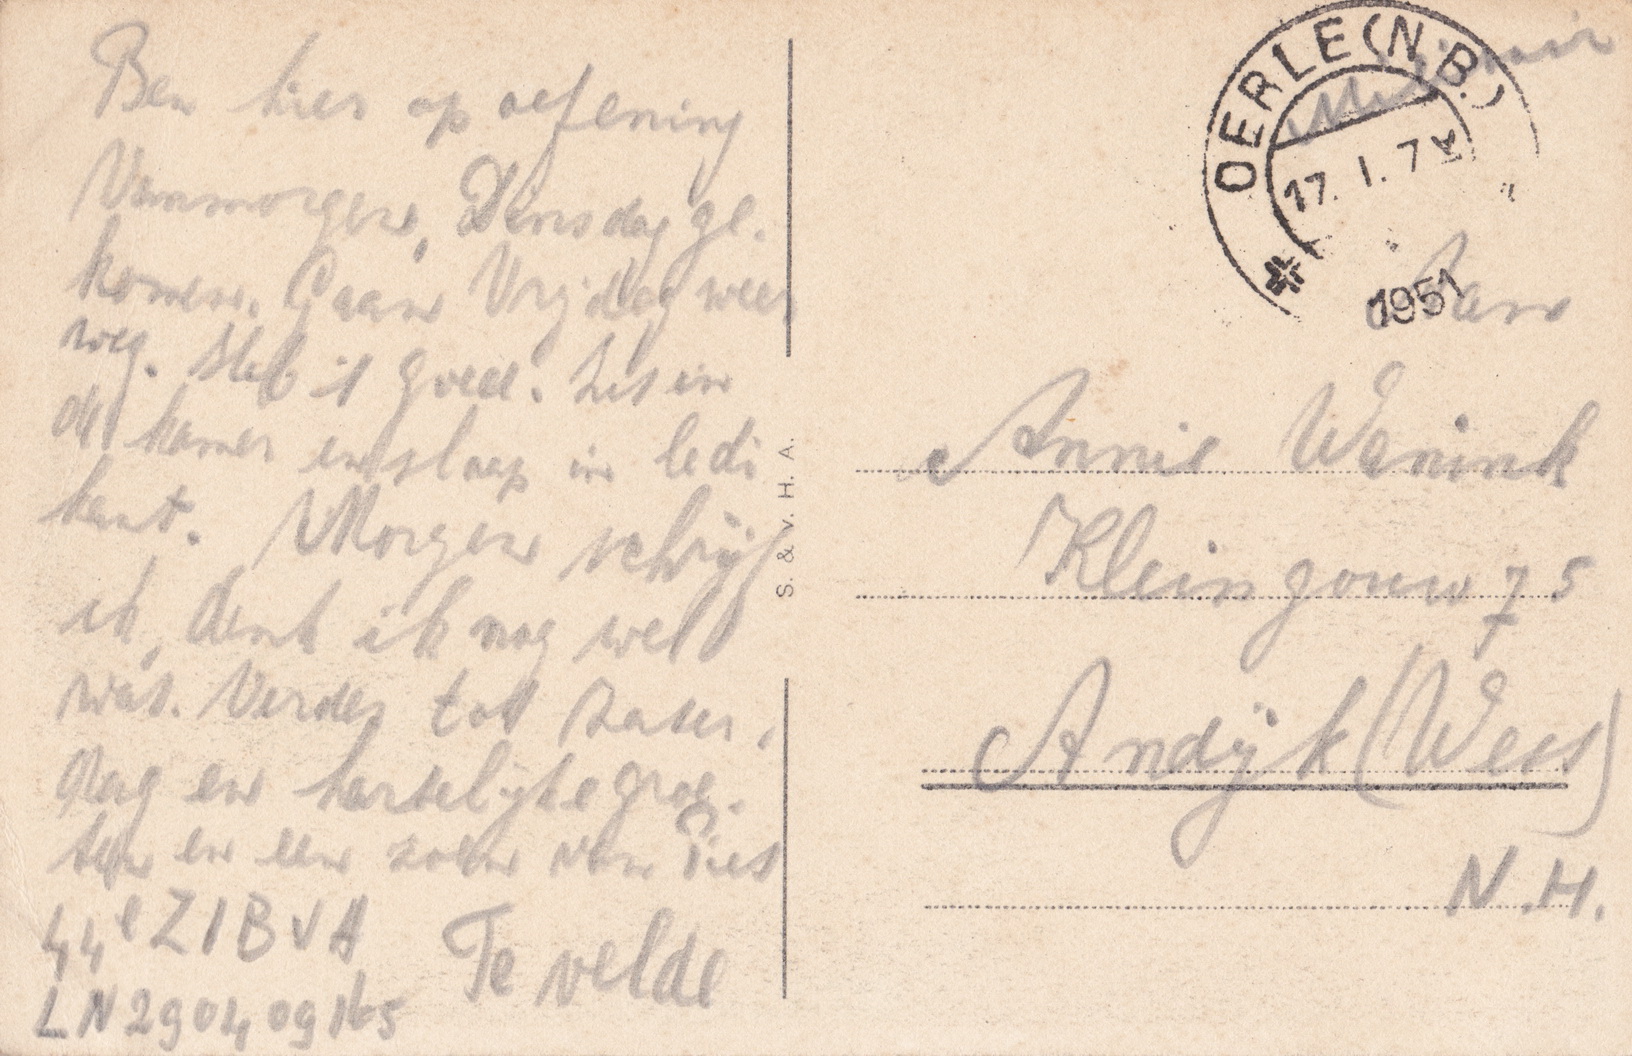 Ben hier op oefening
Vanmorgen, Dinsdag ge-
komen. Gaan Vrijdag weer
weg. Heb it goed. Zit in
de kamer en slaap in ledi
kant. Morgen schrijf
ik, denk ik nog wel
wat. Verder tot Zater-
dag en hartelijke groe-
ten en een zoen van Piet
44e ZIBVA
Te velde
LN 290409165
S. & v. H. A.
OERLE (N.B.)
17. 1. 7
1951
Militair
Aan
Annie Wenink
Kleingouw 75
Andijk (West)
N.H.